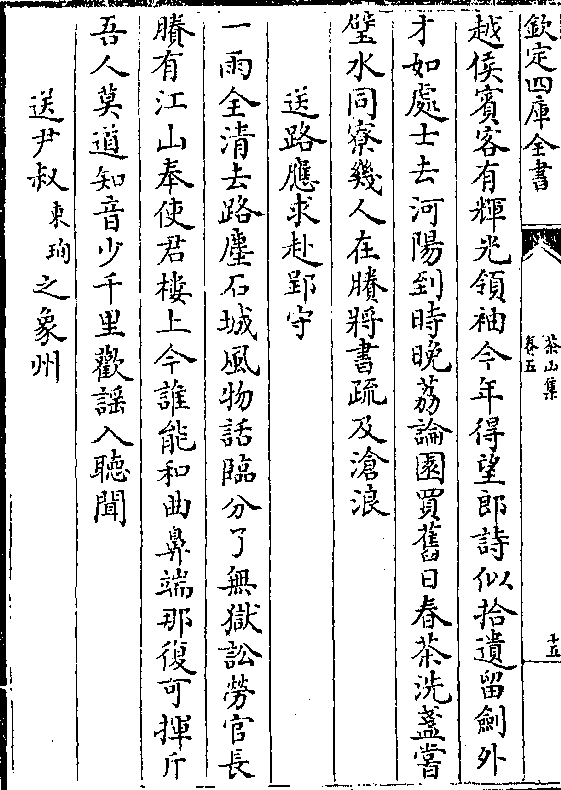 欽定四庫全書
茶山集
卷五
十五
越侯賓客有輝光領袖今年得望郎詩似拾遺留劍外
才如處士去河陽到時晚荔論園買舊日春茶洗盞嘗
璧水同寮幾人在賸將書疏及滄浪
送路應求赴郢守
一雨全清去路塵石城風物話臨分了無獄訟勞官長
賸有江山奉使君樓上今誰能和曲鼻端那復可揮斤
吾人莫道知音少千里歡謡入聽聞
送尹叔東珣之象州